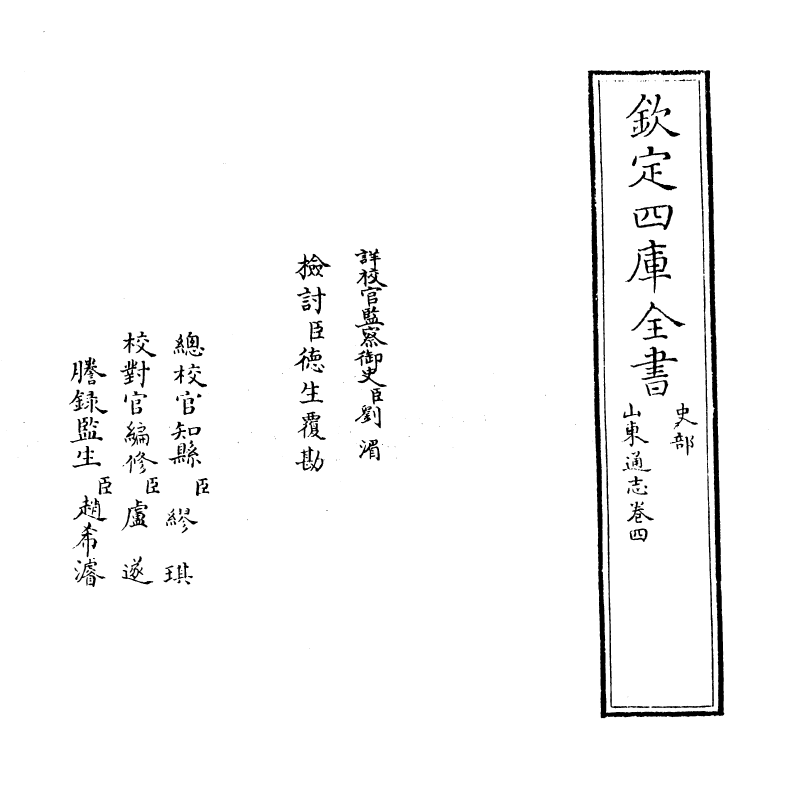 欽定四庫全書
史部
山東通志卷四
詳校官監察御史臣劉湄
檢討臣德生覆勘
總校官知縣臣繆琪
校對官編修臣盧遂
謄錄監生臣趙希濬